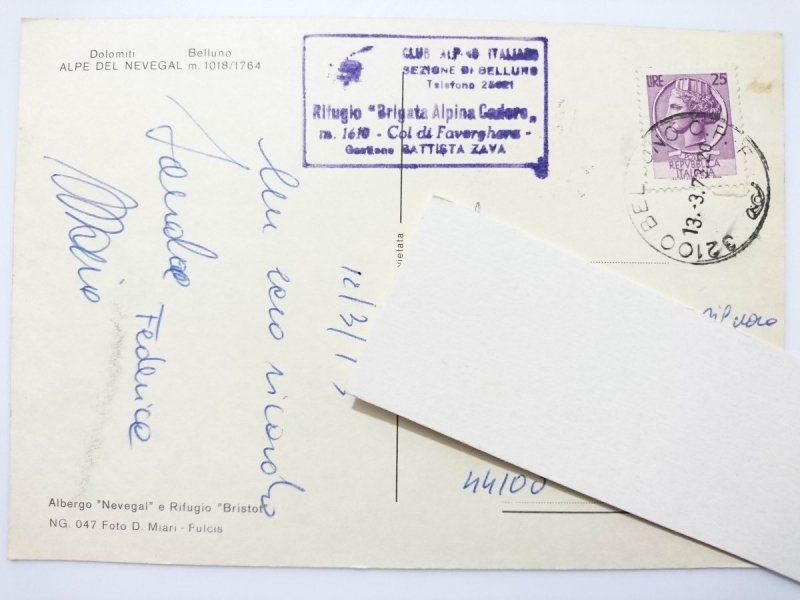 Dolomiti Belluno
ALPE DEL NEVEGAL m. 1018/1764
CLUB ALPINO ITALIANO
SEZIONE DI BELLUNO
Telefono 25021
Rifugio "Brigata Alpina Cadore„
m. 1610 - Col di Faverghera -
Gestione BATTISTA ZAVA
LIRE 25
REPVBBLICA
ITALIANA
32100 BELLUNO
13.-3.7
12/3/1
Un caro ricordo
Federica
Mario
44100
Albergo "Nevegal" e Rifugio "Bristot"
NG. 047 Foto D. Miari - Fulcis